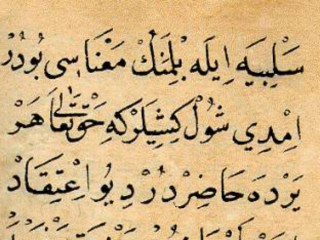 سَلْبِيَه اِيلَه بِلْمَنِكْ مَعْنَاسِی بُودُرْ
اِمْدِي شُولْ كِشِيلَرْكِه حَقْ تَعَالَى هَرْ
يَرْدَه حَاضِرْدُرْ دِيُو اِعْتِقَادْ